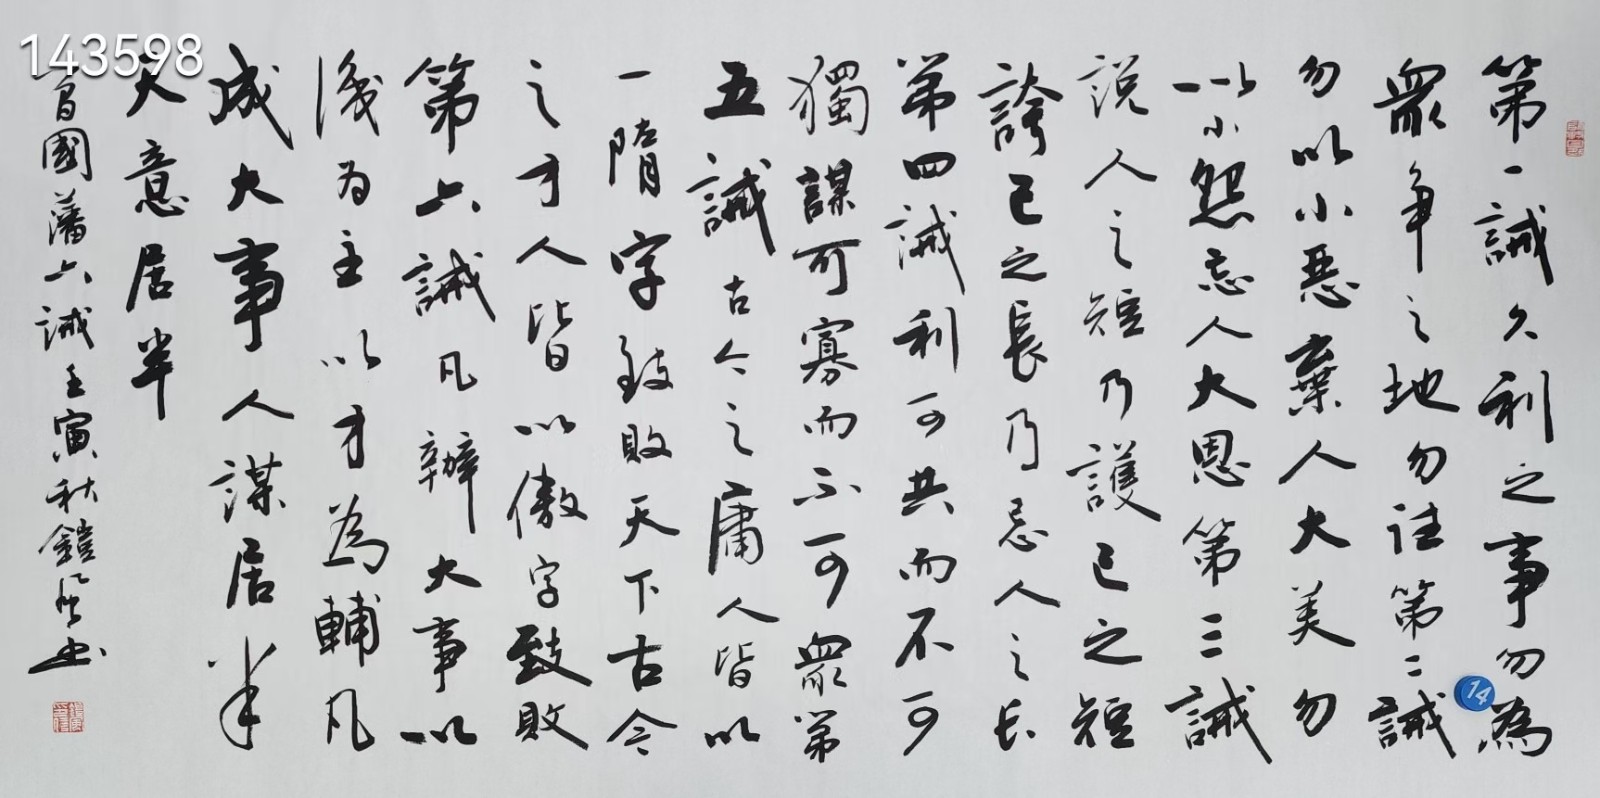 143598
第一誡久利之事勿為
眾争之地勿往第二誡
勿以小惡棄人大美勿
以小怨忘人大恩第三誡
説人之短乃護己之短
誇己之長乃忌人之长
第四誡利可共而不可
獨謀可寡而不可眾第
五誡古今之庸人皆以
一隋字致敗天下古今
之才人皆以傲字致敗
第六誡凡辦大事以
識为主以才為輔凡
成大事人謀居半
天意居半
曾國藩六诫壬寅秋鎧書
14